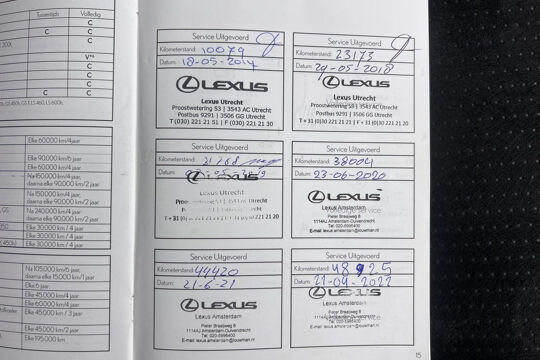 Tussentijds Volledig
C
C C
C
C
C
C
C C
Elke 60.000 km/4 jaar
Elke 90.000 km/6 jaar
Elke 60.000 km/4 jaar
Na 150.000 km/4 jaar,
daarna elke 90.000 km/2 jaar
Na 150.000 km/4 jaar,
daarna elke 90.000 km/2 jaar
Na 240.000 km/4 jaar
daarna elke 90.000 km/2 jaar
Elke 30.000 km / 4 jaar
Elke 30.000 km / 4 jaar
Na 105.000 km/6 jaar,
daarna elke 15.000 km/1 jaar
Elke 6 jaar
Elke 45.000 km/4 jaar
Elke 60.000 km/4 jaar
Elke 45.000 km / 3 jaar
Elke 45.000 km/2 jaar
Elke 195.000 km
Service Uitgevoerd
Kilometerstand: 10079
Datum: 18-05-2014
LEXUS
Lexus Utrecht
Proostwetering 53 | 3543 AC Utrecht
Postbus 9291 | 3506 GG Utrecht
T (030) 221 21 51 | F (030) 221 21 30
Service Uitgevoerd
Kilometerstand: 23173
Datum: 29-05-2018
LEXUS
Lexus Utrecht
Proostwetering 53 | 3543 AC Utrecht
Postbus 9291 | 3506 GG Utrecht
T + 31 (0)30 221 21 21 | F +31 (0)30 221 21 20
Service Uitgevoerd
Kilometerstand:
Datum:
LEXUS
Lexus Utrecht
Service Uitgevoerd
Kilometerstand: 38004
Datum: 23-06-2020
LEXUS
Lexus Amsterdam
Pieter Braaijweg 8
1114AJ Amsterdam-Duivendrecht
Tel. 020-5995400
E-mail: lexus.amsterdam@louwman.nl
Service Uitgevoerd
Kilometerstand: 44420
Datum: 21-6-21
LEXUS
Lexus Amsterdam
Pieter Braaijweg 8
1114AJ Amsterdam-Duivendrecht
Tel. 020-5995400
E-mail: lexus.amsterdam@louwman.nl
Service Uitgevoerd
Kilometerstand: 48925
Datum: 21-04-2022
LEXUS
Lexus Amsterdam
Pieter Braaijweg 8
1114AJ Amsterdam-Duivendrecht
Tel. 020-5995400
E-mail: lexus.amsterdam@louwman.nl
15